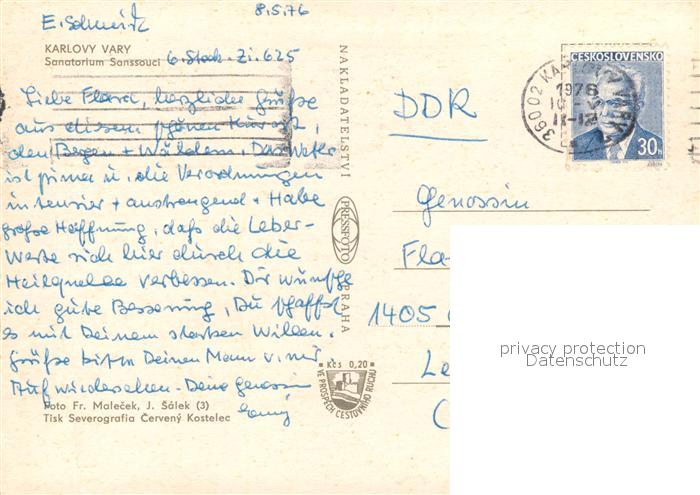 8.5.76
E. Schmidt
KARLOVY VARY
Sanatorium Sanssouci
6. Stock - Zi. 625
Liebe Flora, herzliche Grüße
aus diesem schönen Kurort,
den Bergen + Wäldern. Das Wetter
ist prima u. die Verordnungen
intensiv + anstrengend. Habe
große Hoffnung, daß die Leber-
werte sich hier durch die
Heilquellen verbessern. Dir wünsche
ich gute Besserung, Du schaffst
es mit Deinem starken Willen.
Grüße bitte Deinen Mann v. mir
Auf wiedersehen - Deine Genossin
Foto Fr. Maleček, J. Šálek (3)
Tisk Severografia Červený Kostelec
NAKLADATELSTVÍ
PRESSFOTO
PRAHA
Kčs 0,20
VE PROSPĚCH CESTOVNÍHO RUCHU
ČESKOSLOVENSKO
30h
36002 KARLOVY VARY
1976
DDR
Genossin
Fla-
1405
Le
privacy protection
Datenschutz